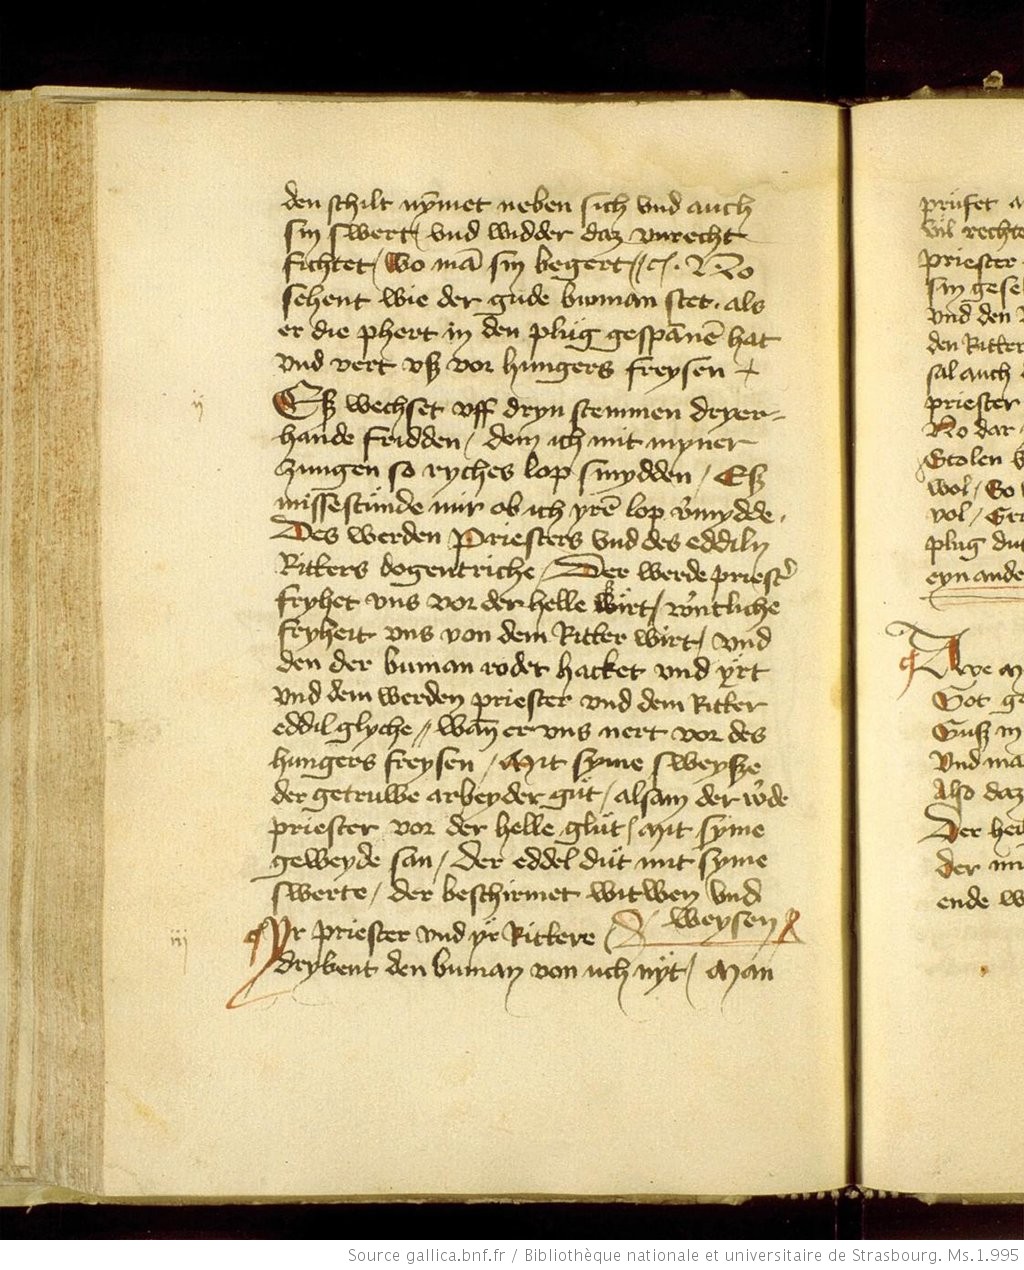 den schilt nÿmet neben sich vnd auch
sin swert / vnd widder daz vnrecht
fichtet / wo mā sin begert // c̄ . No
sehent wie der gude buman stet . als
er die phert in den plüg gespānē hat
vnd vert vß vor hungers freysen
ij
Eß wechset vff dryn stemmen dryer=
hande fridden / dem ich mit myner
zungen so ryches lop smydden / Eß
missestünde mir ob ich yrē lop v̾mydde .
Des werden priesters vnd des eddiln
Ritters dogentriche / Der werde priest̾
fryhet vns vor der helle wirt / w̾ntliche
fryheit vns von dem Ritter wirt / vnd
den der buman rodet hacket vnd ÿrt
vnd dem werden priester vnd dem Ritter
eddil glyche // wan̄ er vns nert vor des
hungers freysen / Mit syme sweysze
der getruwe arbeyder güt / alsam der w̾de
priester vor der helle glüt / Mit syme
geweyde san / Der eddel düt mit syme
swerte / der beschirmet witwen vnd
weysen
iij
Yr priester vnd ÿr Rittere
drybent den buman von uch nÿt / Man
prüfet
vil rechte
priester
sin gese
vnd den
den Ritter
sal auch
priester
No dar
Stolen
wol / So
vol /
plug dut
eyn ande
Got
vnd ma
Also daz
Der hei
der
ende w
Source gallica.bnf.fr / Bibliothèque nationale et universitaire de Strasbourg. Ms.1.995